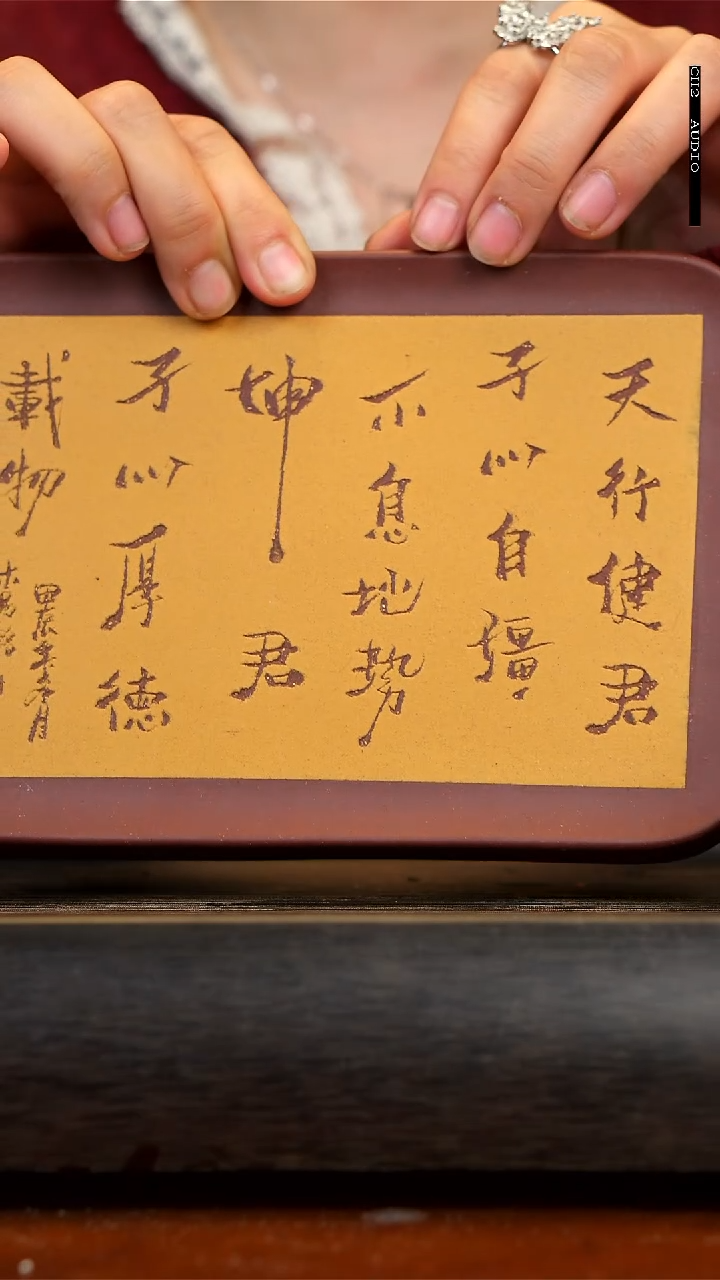 天行健君
子以自彊
不息地势
坤君
子以厚德
載物
甲辰年冬月
CH2 AUDIO